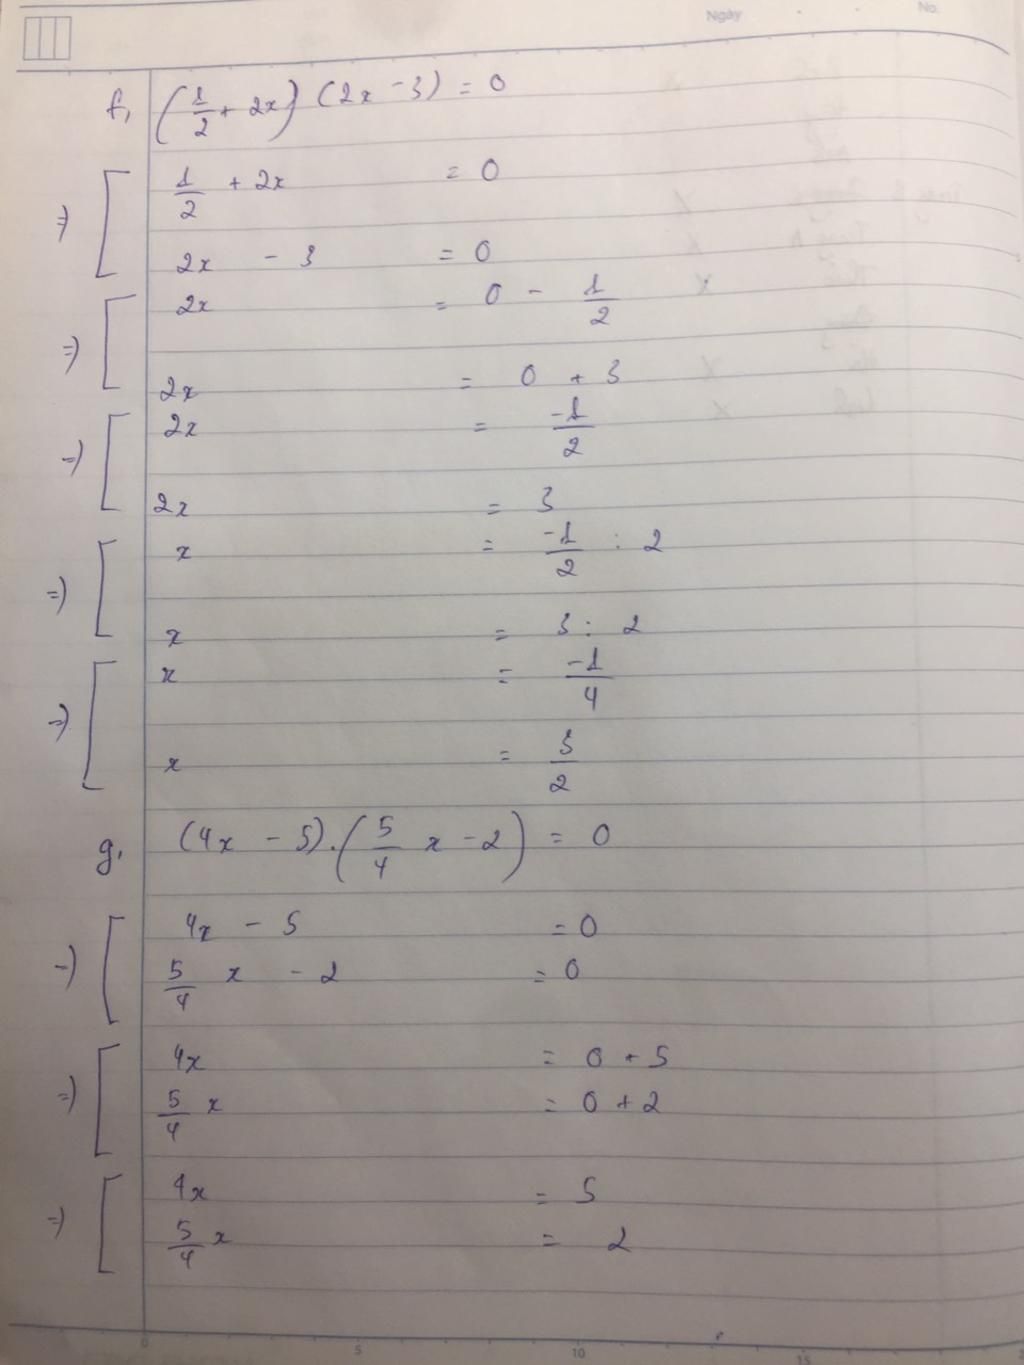 Ngày No.
f, (1/2 + 2x) (2x - 3) = 0
=> [ 1/2 + 2x = 0
2x - 3 = 0
=> [ 2x = 0 - 1/2
2x = 0 + 3
=> [ 2x = -1/2
2x = 3
=> [ x = -1/2 : 2
x = 3 : 2
=> [ x = -1/4
x = 3/2
g, (4x - 5).(5/4 x - 2) = 0
=> [ 4x - 5 = 0
5/4 x - 2 = 0
=> [ 4x = 0 + 5
5/4 x = 0 + 2
=> [ 4x = 5
5/4 x = 2
0 5 10 15